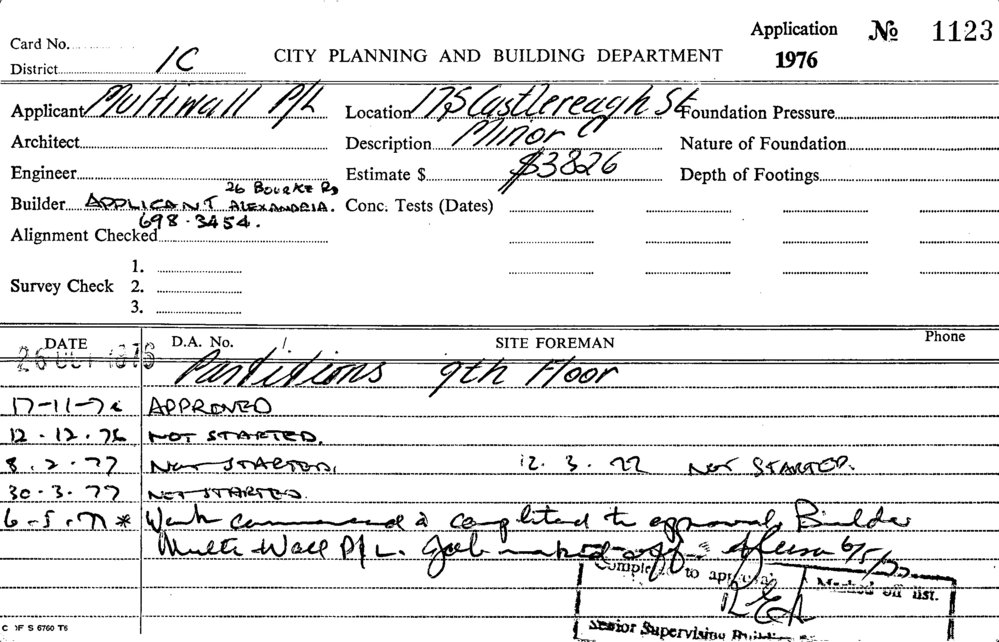 Application № 1123
Card No.
CITY PLANNING AND BUILDING DEPARTMENT 1976
District 1C
Applicant Multiwall P/L Location 175 Castlereagh St Foundation Pressure
Architect Description Minor C Nature of Foundation
Engineer Estimate $ $3826 Depth of Footings
26 BOURKE RD
Builder APPLICANT ALEXANDRIA. Conc. Tests (Dates)
698-3454.
Alignment Checked
1.
Survey Check 2.
3.
DATE D.A. No. / SITE FOREMAN Phone
26 OCT 1976 Partitions 9th Floor
17-11-76 APPROVED
12.12.76 NOT STARTED.
8.2.77 NOT STARTED. 12.3.77 NOT STARTED.
30.3.77 NOT STARTED.
6-5-77 * Work commenced & completed to approval. Builder
Multi Wall P/L. Job marked off 6/5/77
Completed to approval Marked off list.
Senior Supervising Building
S 6760